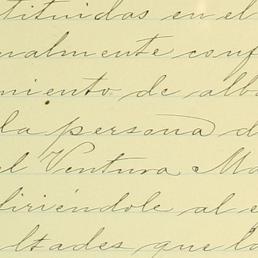 tituidas en el
ualmente conf
miento de alba
la persona d
el Ventura Ma
firiéndole al e
ltades que la